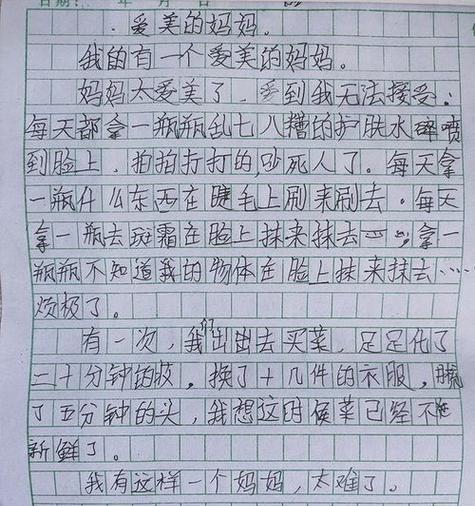 日期： 年 月 日
.爱美的妈妈。
我的有一个爱美的妈妈。
妈妈太爱美了，到我无法接受：
每天都拿一瓶瓶乱七八糟的护肤水喷
到脸上，拍拍打打的，吵死人了。每天拿
一瓶什么东西在睫毛上刷来刷去。每天
拿一瓶去斑霜在脸上抹来抹去……；拿一
瓶瓶不知道我的物体在脸上抹来抹去……
烦极了。
有一次，我们出去买菜，足足化了
二十分钟的妆，换了十几件的衣服，梳
了五分钟的头，我想这时候菜已经不
新鲜了。
我有这样一个妈妈，太难了。